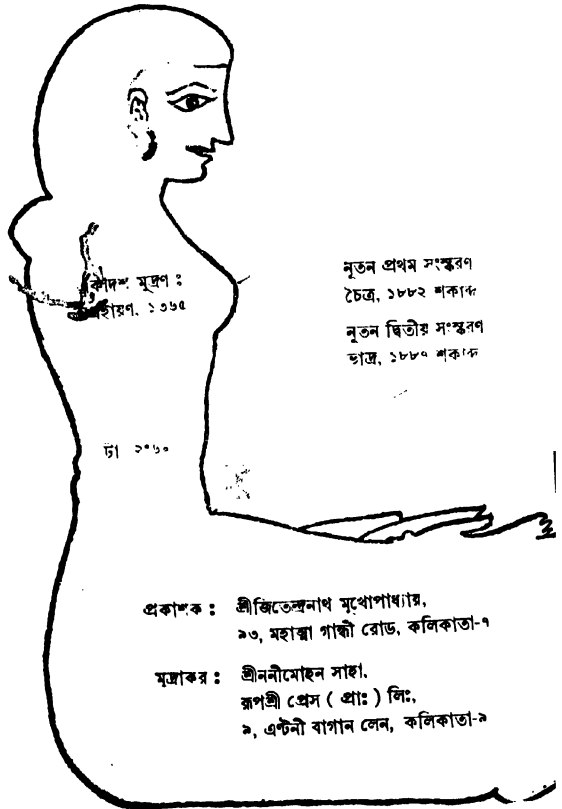 একাদশ মুদ্রণ :
অগ্রহায়ণ, ১৩৬৫
নূতন প্রথম সংস্করণ
চৈত্র, ১৮৮২ শকাব্দ
নূতন দ্বিতীয় সংস্করণ
ভাদ্র, ১৮৮৭ শকাব্দ
টা
প্রকাশক : শ্রীজিতেন্দ্রনাথ মুখোপাধ্যায়,
৯৩, মহাত্মা গান্ধী রোড, কলিকাতা-৭
মুদ্রাকর : শ্রীননীমোহন সাহা,
রূপশ্রী প্রেস ( প্রাঃ ) লিঃ,
৯, এন্টনী বাগান লেন, কলিকাতা-৯